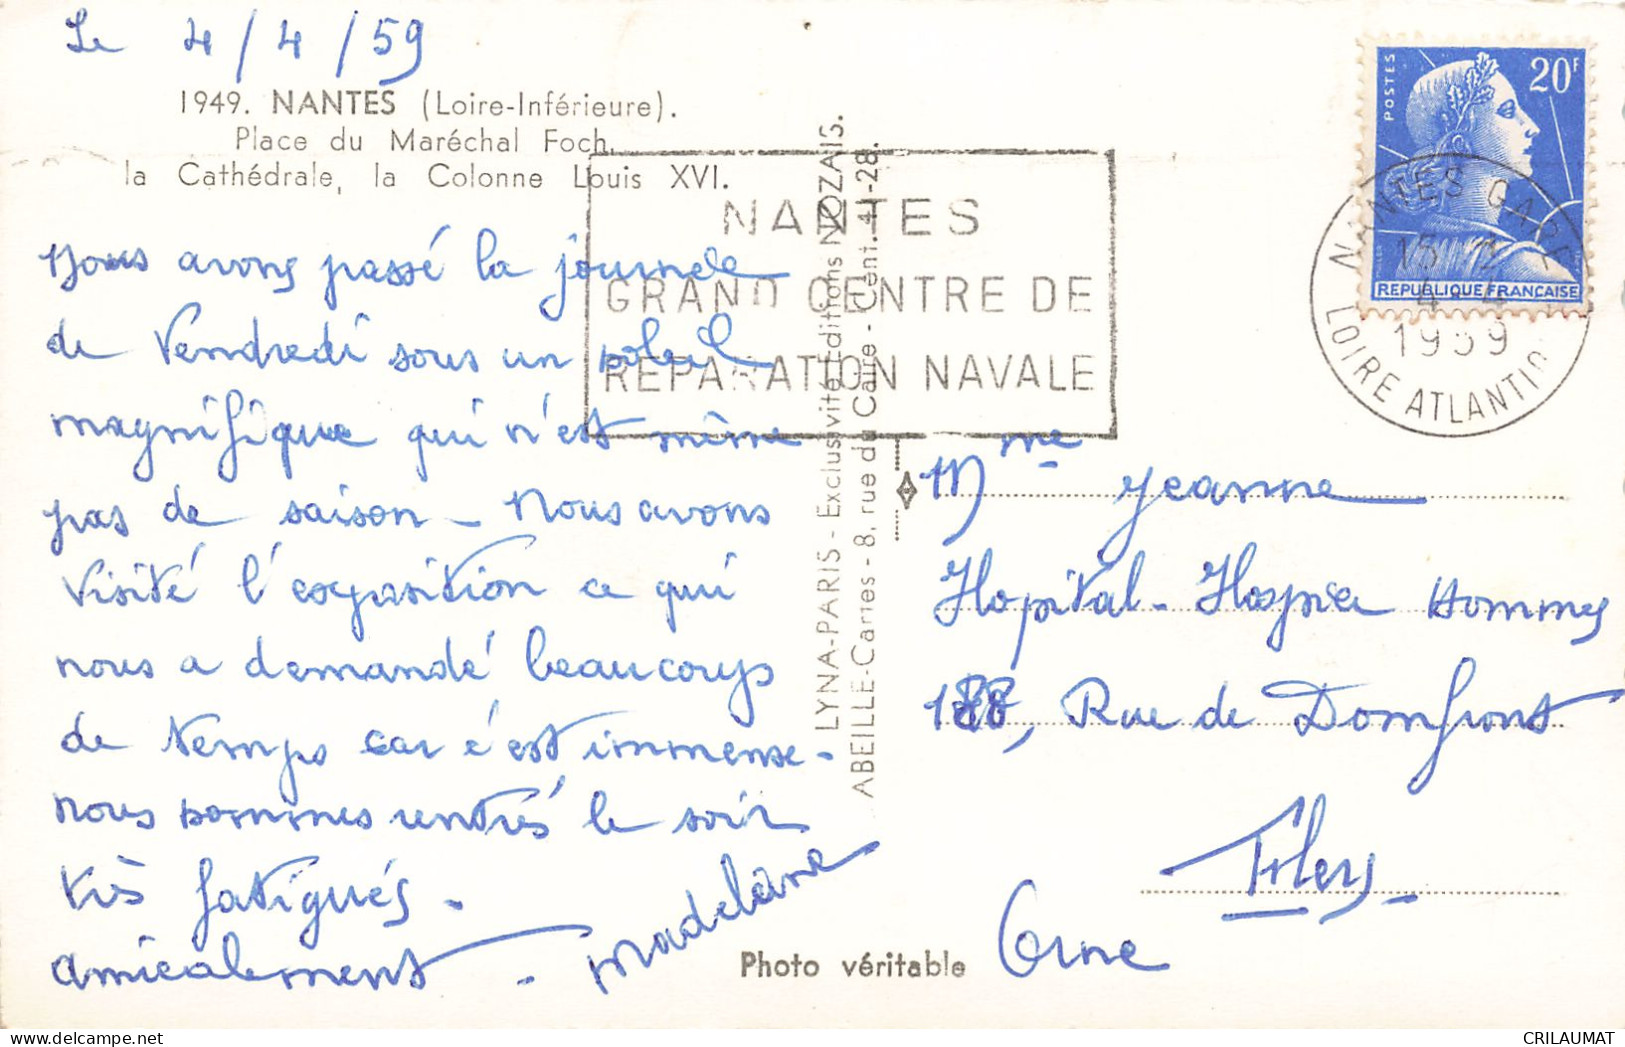 Le 4/4/59
1949. NANTES (Loire-Inférieure).
Place du Maréchal Foch,
la Cathédrale, la Colonne Louis XVI.
Nous avons passé la journée
de Vendredi sous un soleil
magnifique qui n'est même
pas de saison - Nous avons
visité l'exposition ce qui
nous a demandé beaucoup
de temps car c'est immense -
nous sommes rentrés le soir
très fatigués -
amicalement - Madeleine
NANTES
GRAND CENTRE DE
REPARATION NAVALE
LYNA-PARIS - Exclusivité Editions NOZAIS.
ABEILLE-Cartes - 8, rue du Caire - Cent. 41-28.
POSTES
20F
REPUBLIQUE FRANÇAISE
NANTES GARE
4-4
1959
LOIRE ATLANTIQ
Mme Jeanne
Hopital-Hospice Hommes
188, Rue de Domfront
Flers
Orne
Photo véritable
CRILAUMAT